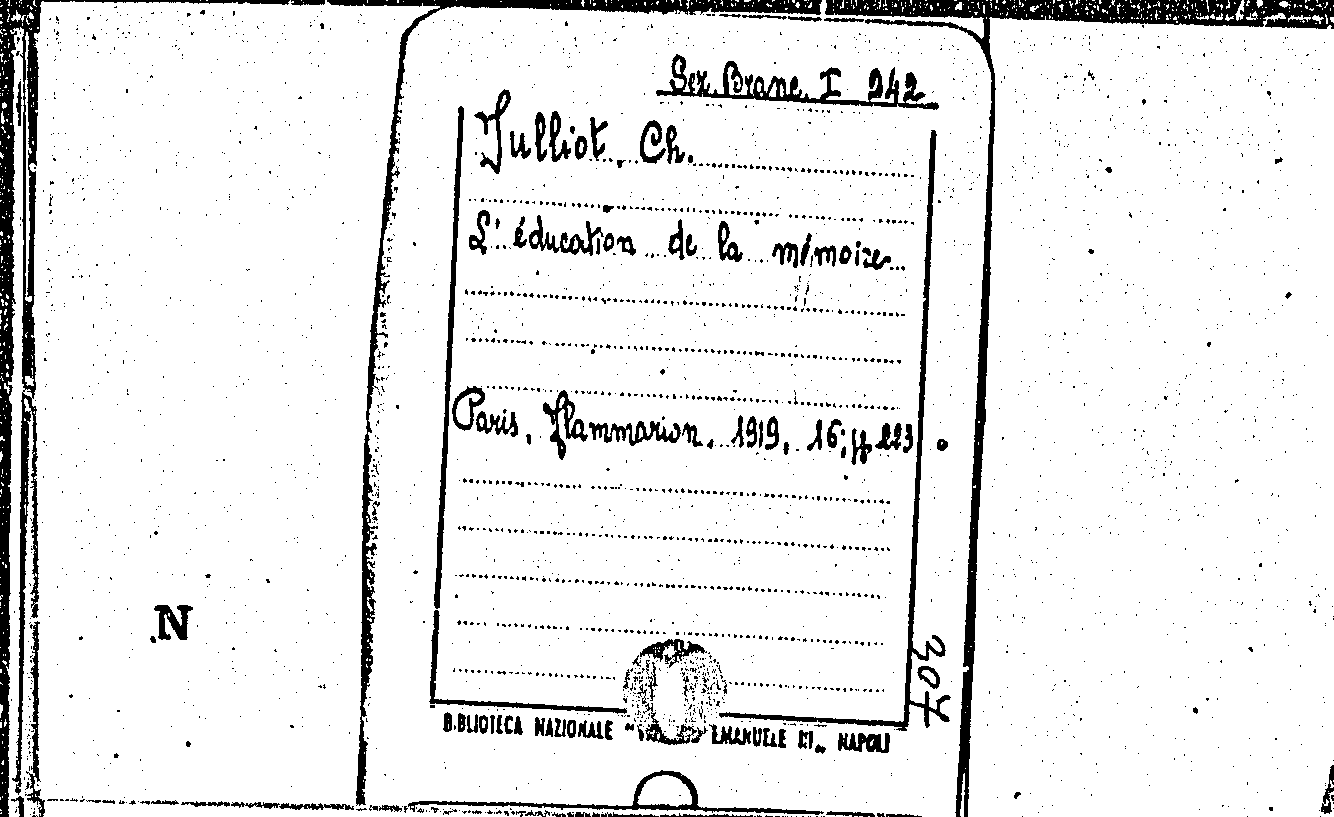 Sez. Branc. I 242
Julliot, Ch.
L'éducation de la mémoire
Paris, Flammarion, 1919, 16; pp 223
N
307
B.BLIOTECA NAZIONALE " EMANUELE III„ NAPOLI